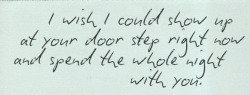 I wish I could show up
at your door step right now
and spend the whole night
with you.